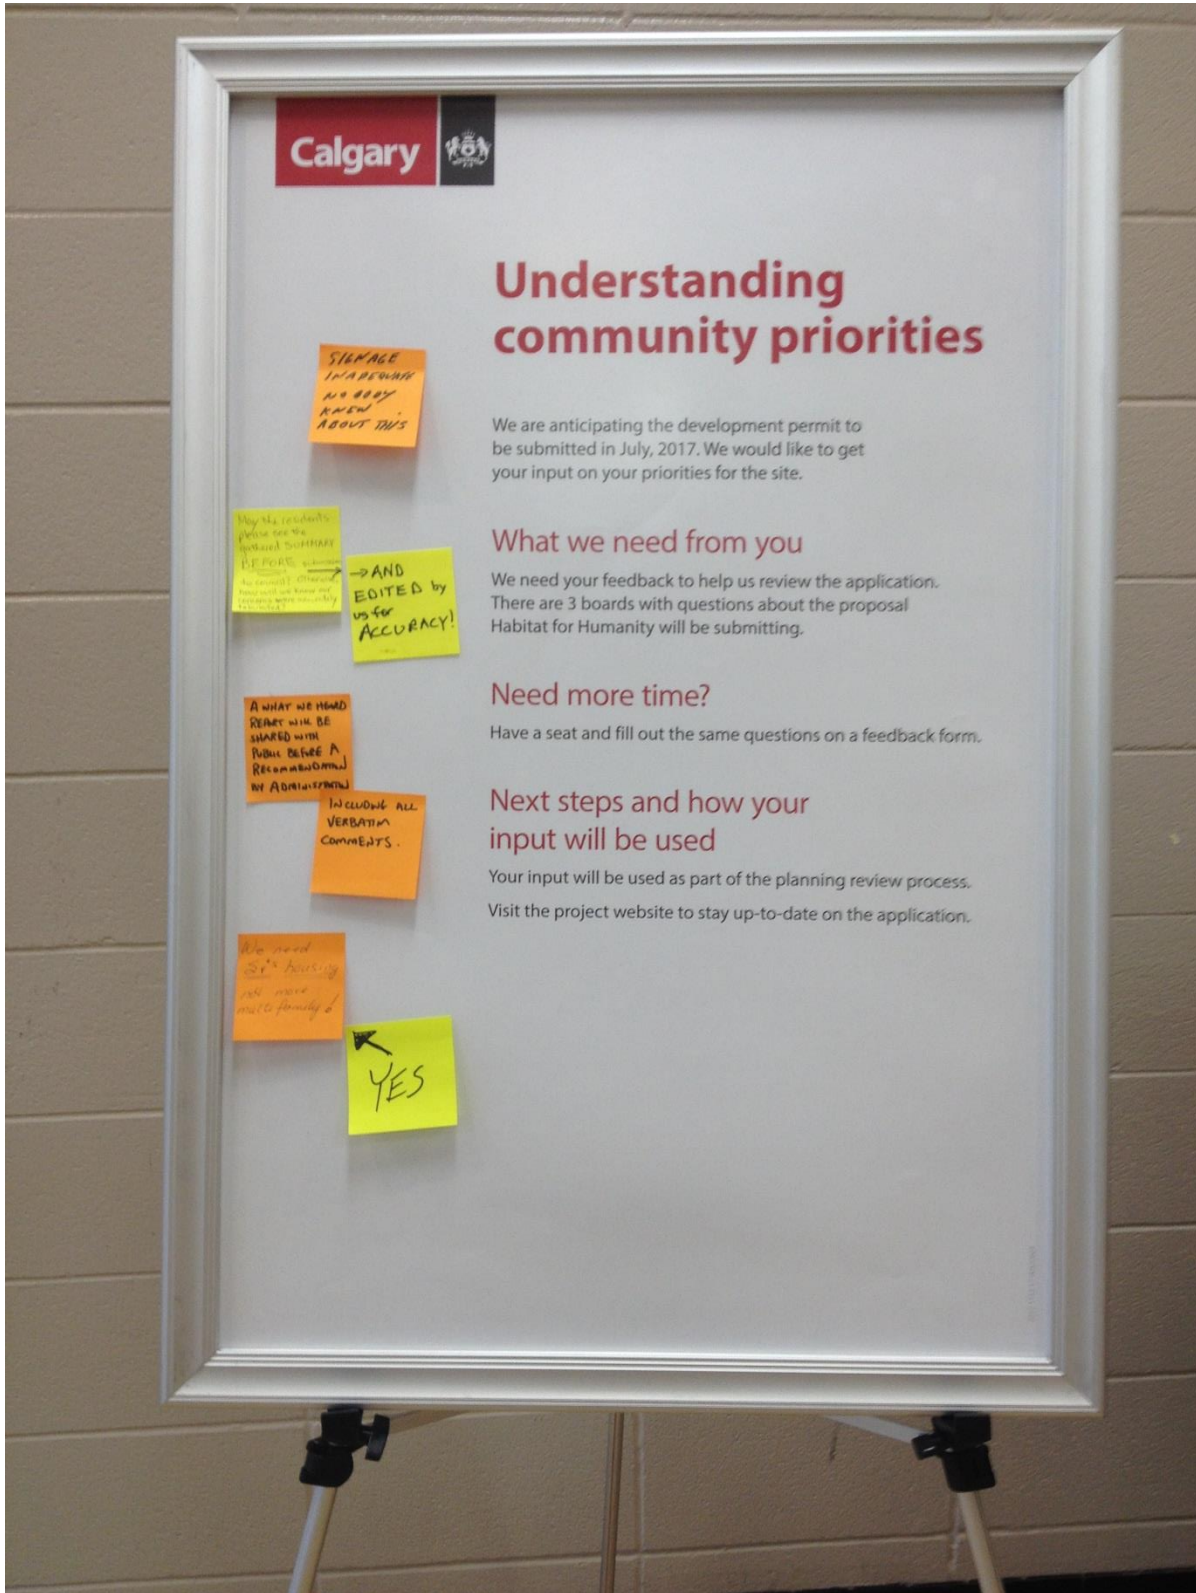 Calgary
Understanding
community priorities
We are anticipating the development permit to
be submitted in July, 2017. We would like to get
your input on your priorities for the site.
What we need from you
We need your feedback to help us review the application.
There are 3 boards with questions about the proposal
Habitat for Humanity will be submitting.
Need more time?
Have a seat and fill out the same questions on a feedback form.
Next steps and how your
input will be used
Your input will be used as part of the planning review process.
Visit the project website to stay up-to-date on the application.
SIGNAGE
INADEQUATE
NOBODY
KNEW
ABOUT THIS
May the residents
please see the
gathered SUMMARY
BEFORE
to council? Otherwise,
how will we know our
→AND
EDITED by
us for
ACCURACY!
A WHAT WE HEARD
REPORT WILL BE
SHARED WITH
PUBLIC BEFORE A
RECOMMENDATION
BY ADMINISTRATION
INCLUDING ALL
VERBATIM
COMMENTS.
We need
Sr's housing
not more
multi family!
YES